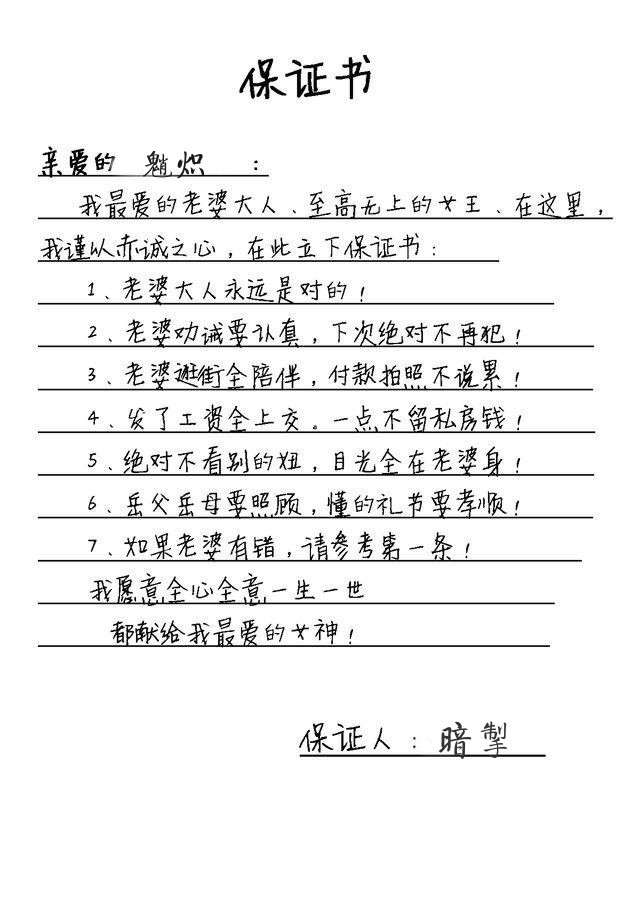 保证书
亲爱的 魈炽 :
我最爱的老婆大人、至高无上的女王、在这里,
我谨以赤诚之心,在此立下保证书:
1、老婆大人永远是对的!
2、老婆劝诫要认真,下次绝对不再犯!
3、老婆逛街全陪伴,付款拍照不说累!
4、发了工资全上交。一点不留私房钱!
5、绝对不看别的妞,目光全在老婆身!
6、岳父岳母要照顾,懂的礼节要孝顺!
7、如果老婆有错,请参考第一条!
我愿意全心全意一生一世
都献给我最爱的女神!
保证人:暗掣